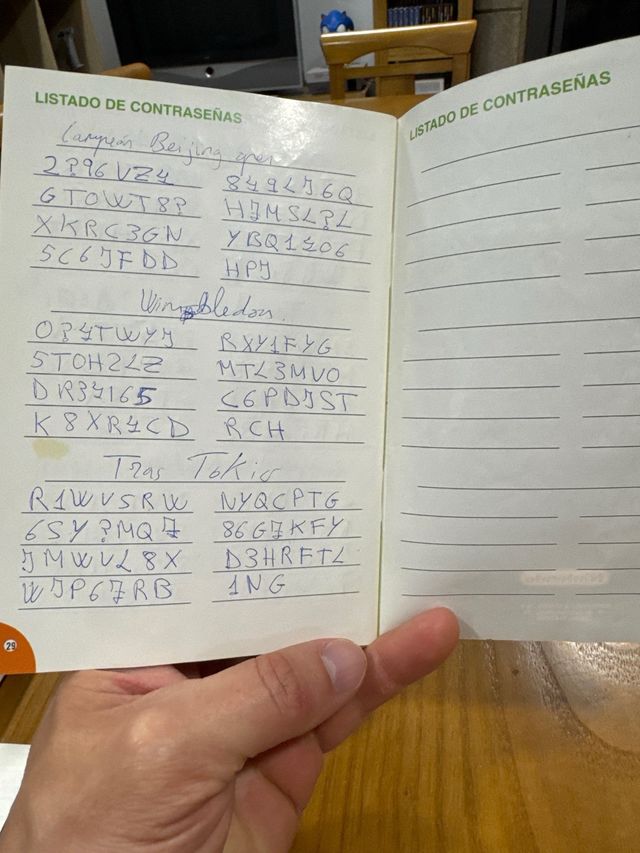 LISTADO DE CONTRASEÑAS
Campeón Beijing open
2?96VZ4 849LJ6Q
GTOWT8? HJMSL?L
XKRC3GN YBQ1406
5C6JFDD HPJ
Wimbledon
O?4TWYJ RXY1FYG
5TOH2LZ MTL3MVO
DR34165 C6PDJST
K8XR4CD RCH
Tras Tokio
R1WVSRW NYQCPTG
6SY?MQ7 86G7KFY
JMWVL8X D3HRFTL
WJP67RB 1NG
29
LISTADO DE CONTRASEÑAS